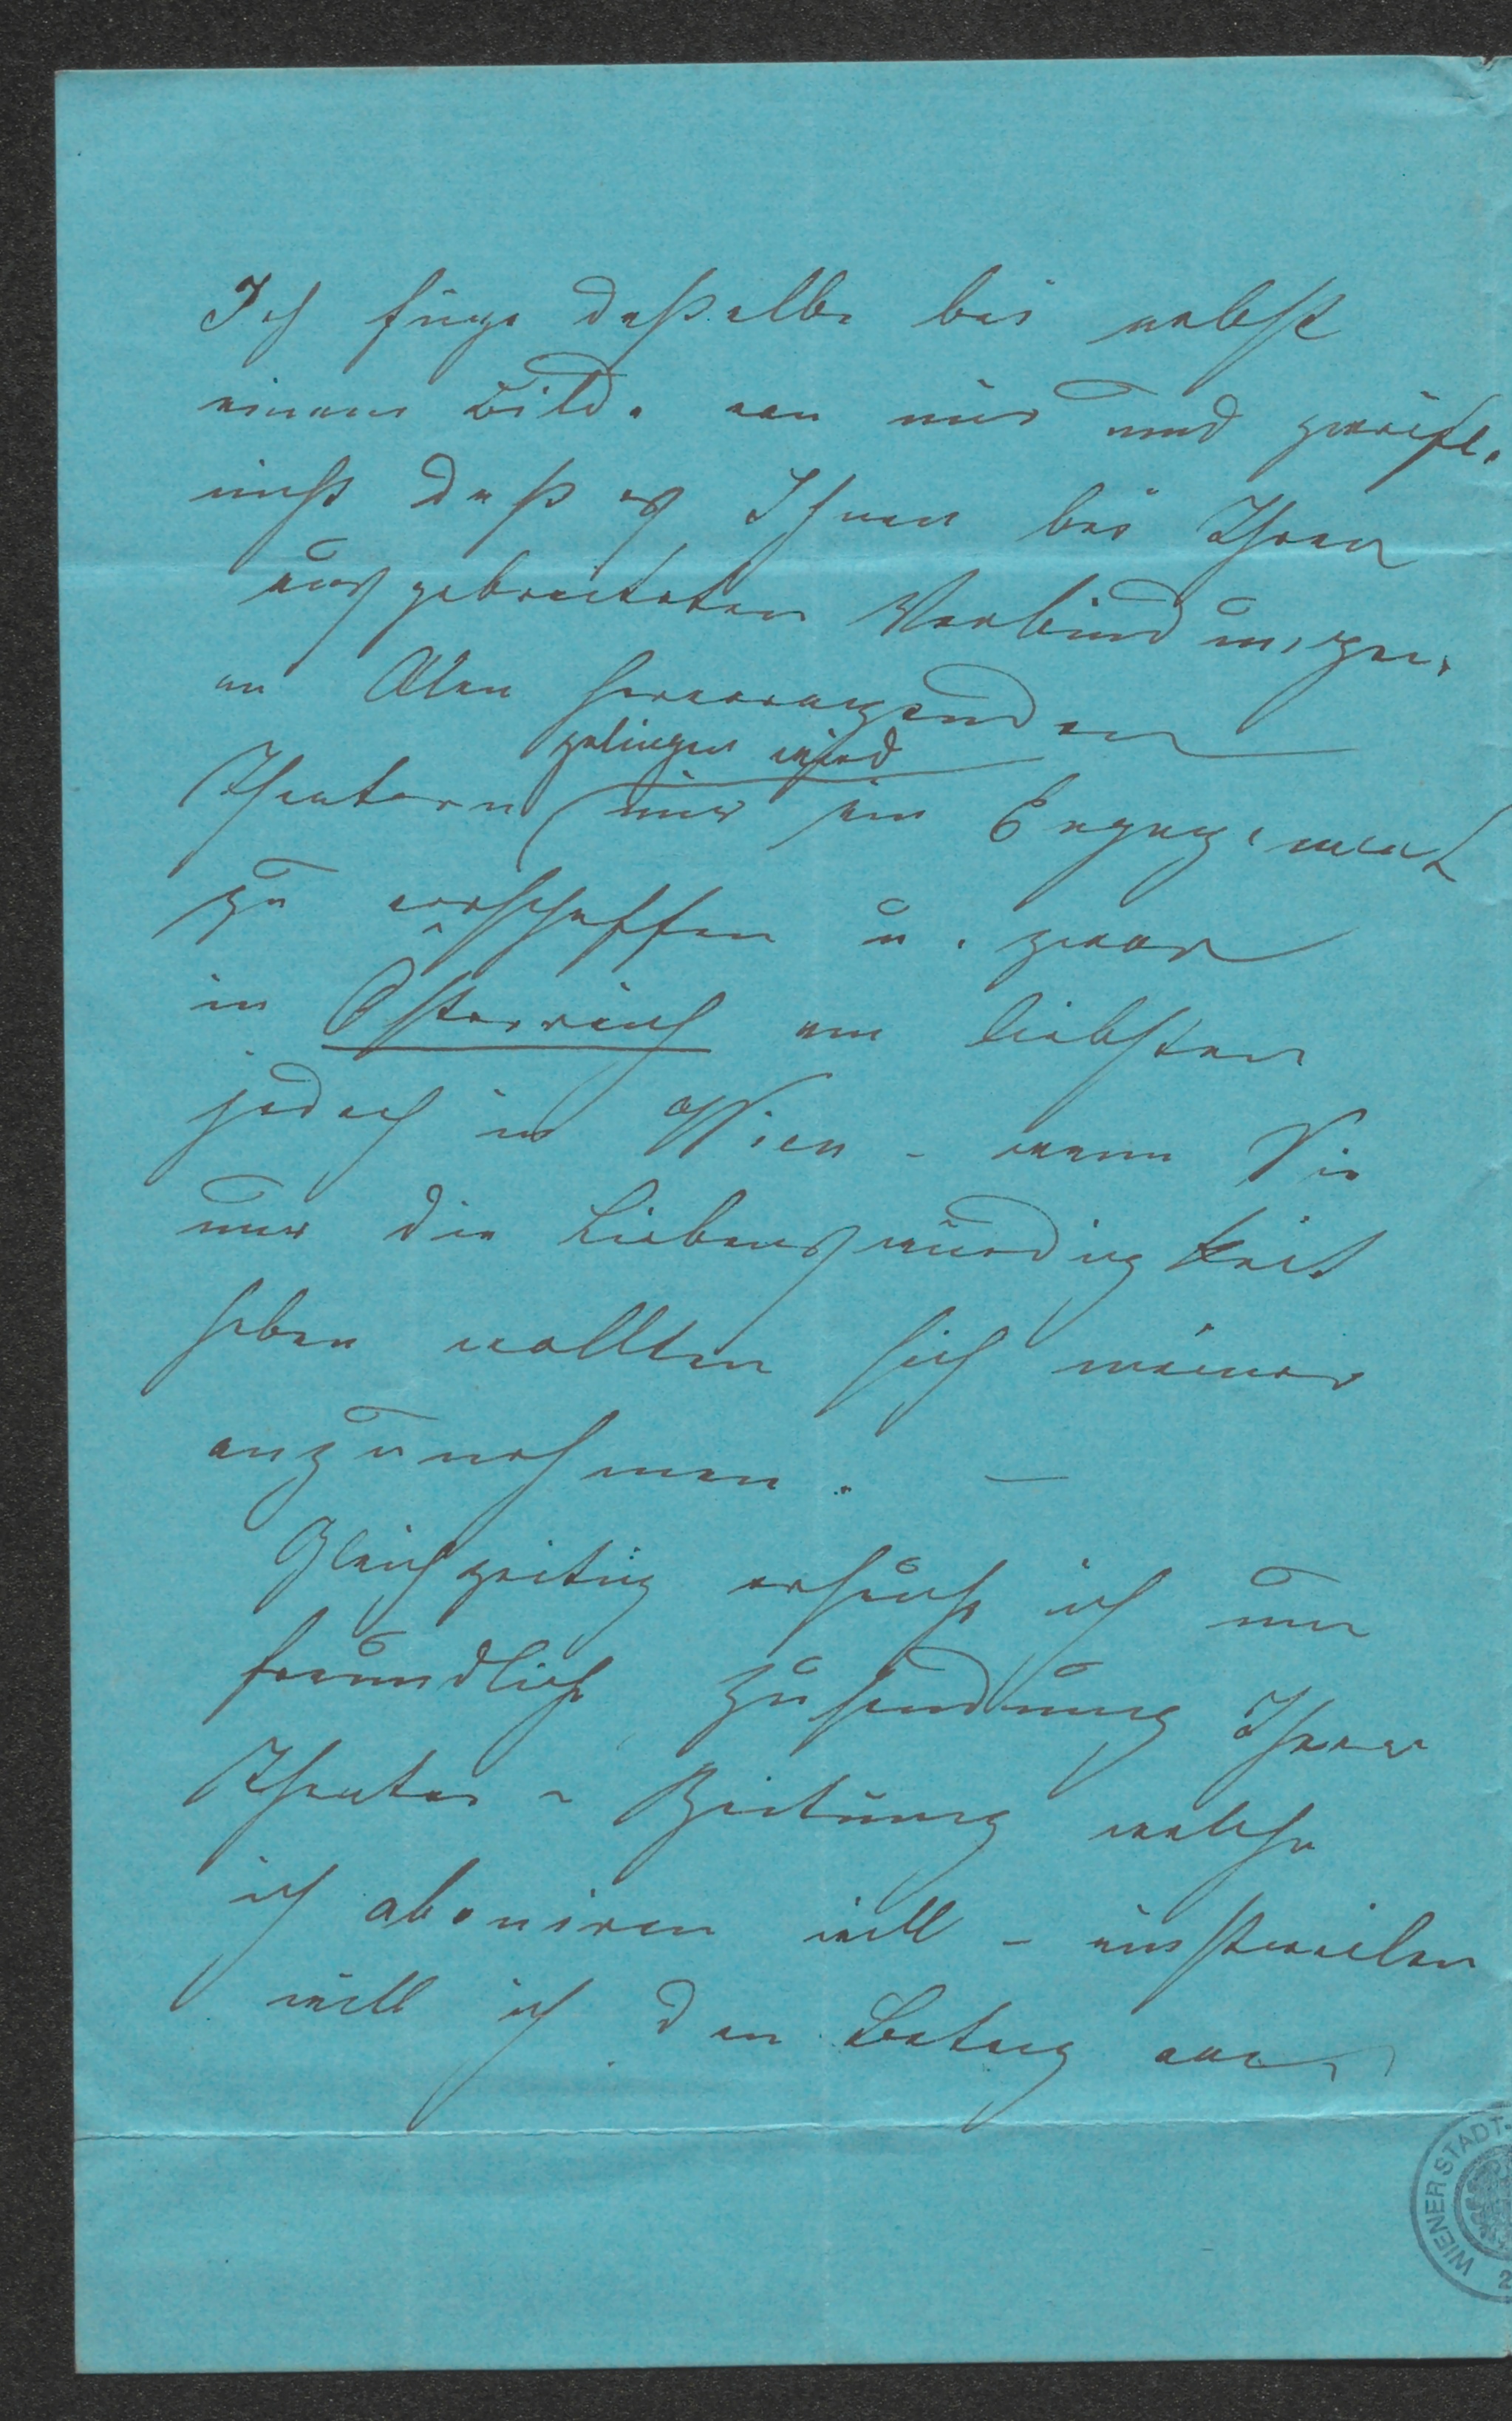 Ich füge daßelbe bei nebst
einem Bilde von mir und zweifle
nicht daß es Ihnen bei Ihren
ausgebreiteten Verbindungen
an Allen hervorragenden
gelingen wird
Theatern mir ein Engagement
zu verschaffen u. zwar
in Österreich am liebsten
jedoch in Wien – wenn Sie
nur die Liebenswürdigkeit
haben wollten sich meiner
anzunehmen. –
Gleichzeitig ersuche ich um
freundliche Zusendung Ihrer
Theater-Zeitung welche
ich aboniren will – einstweilen
will ich den Betrag
WIENER STADT-
2